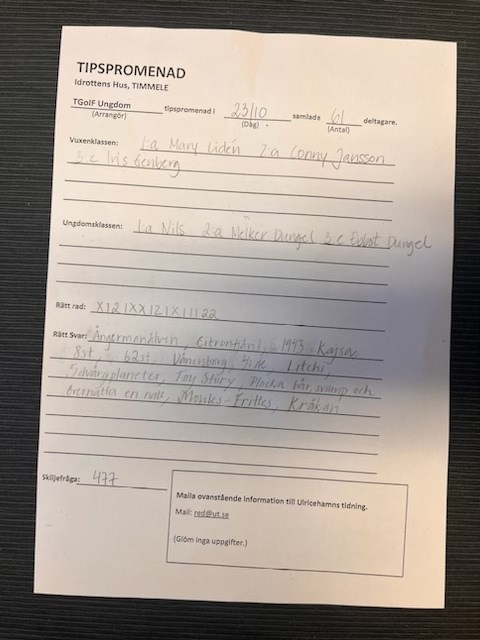 TIPSPROMENAD
Idrottens Hus, TIMMELE
TGoIF Ungdom tipspromenad i 23/10 samlade 61 deltagare.
(Arrangör) (Dag) (Antal)
Vuxenklassen: 1:a Mary Lidén 2:a Conny Jansson
3:e Iris Stenberg
Ungdomsklassen: 1:a Nils 2:a Melker Dungel 3:e Dungel
Rätt rad: X121XX121X11122
Rätt Svar: Ångermanälven, Citrontjäril, 1993 Kajsa,
8st, 62st, Vänersborg, Litchi,
5 dvärgplaneter, Toy Story, Plocka bär, svamp och
övernatta en natt, Moules-Frittes, Kråkan
Skiljefråga: 477
Maila ovanstående information till Ulricehamns tidning.
Mail: red@ut.se
(Glöm inga uppgifter.)